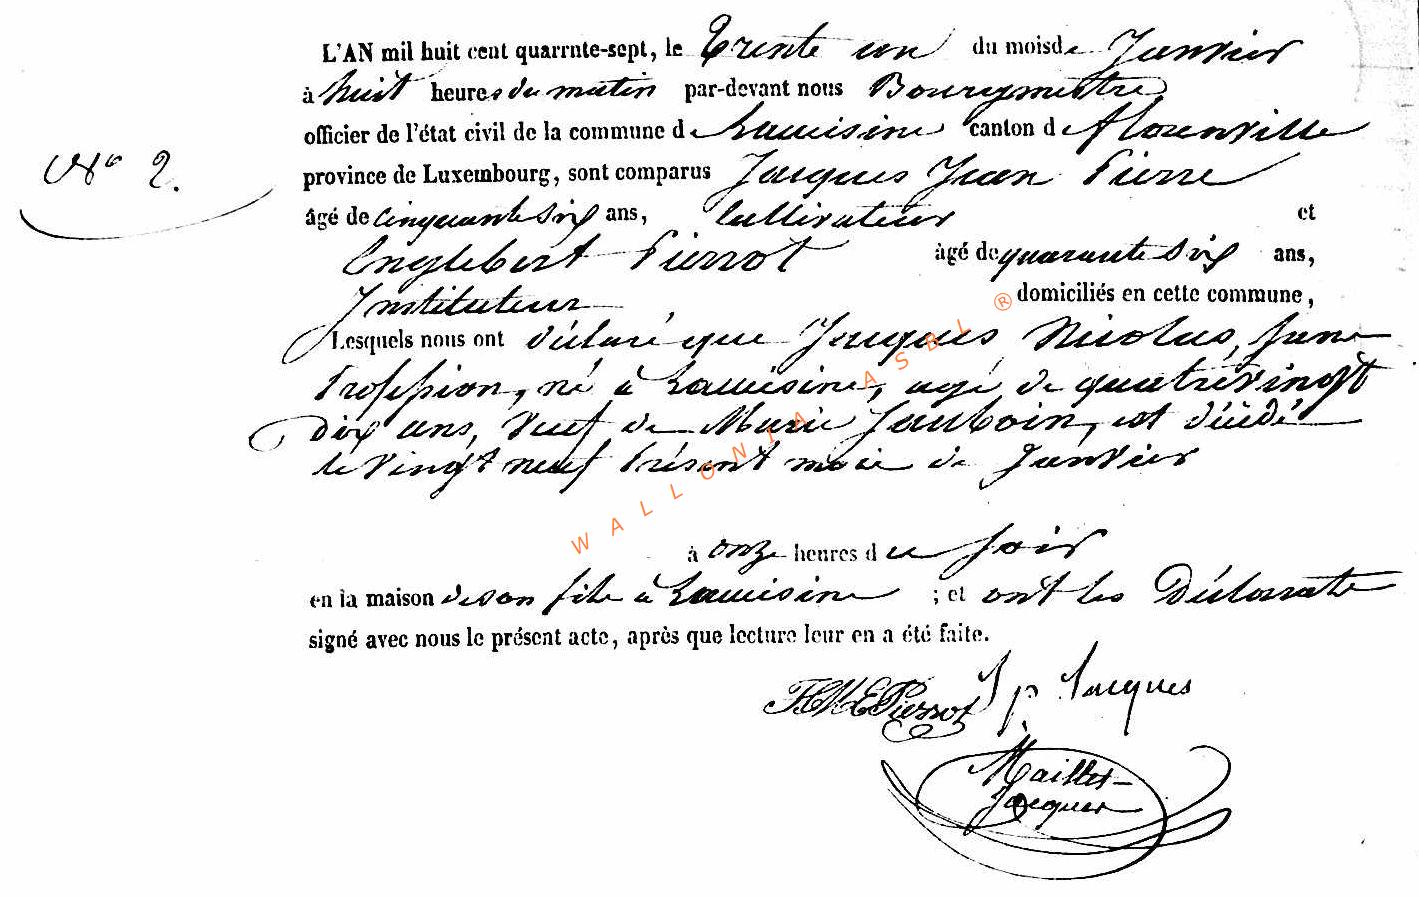 L'AN mil huit cent quarrnte-sept, le Trente un du mois de Janvier
à huit heures du matin par-devant nous Bourgmestre
officier de l'état civil de la commune de Lacuisine canton de florenville
N° 2.
province de Luxembourg, sont comparus Jacques Jean Pierre
âgé de cinquante Six ans, Cultivateur et
Englebert Pierrot âgé de quarante Six ans,
Instituteur domiciliés en cette commune,
Lesquels nous ont déclaré que Jacques Nicolas, Sans
Profession, né à Lacuisine, agé de quatrevingt
Dix ans, Veuf de Marie Jauboin, est décédé
le vingt neuf Présent mois de Janvier
à onze heures du Soir
en la maison de son fils à Lacuisine ; et ont les Déclarants
signé avec nous le présent acte, après que lecture leur en a été faite.
Pierrot J p Jacques
Maillet-
Jacques
WALLONIA ASBL ®